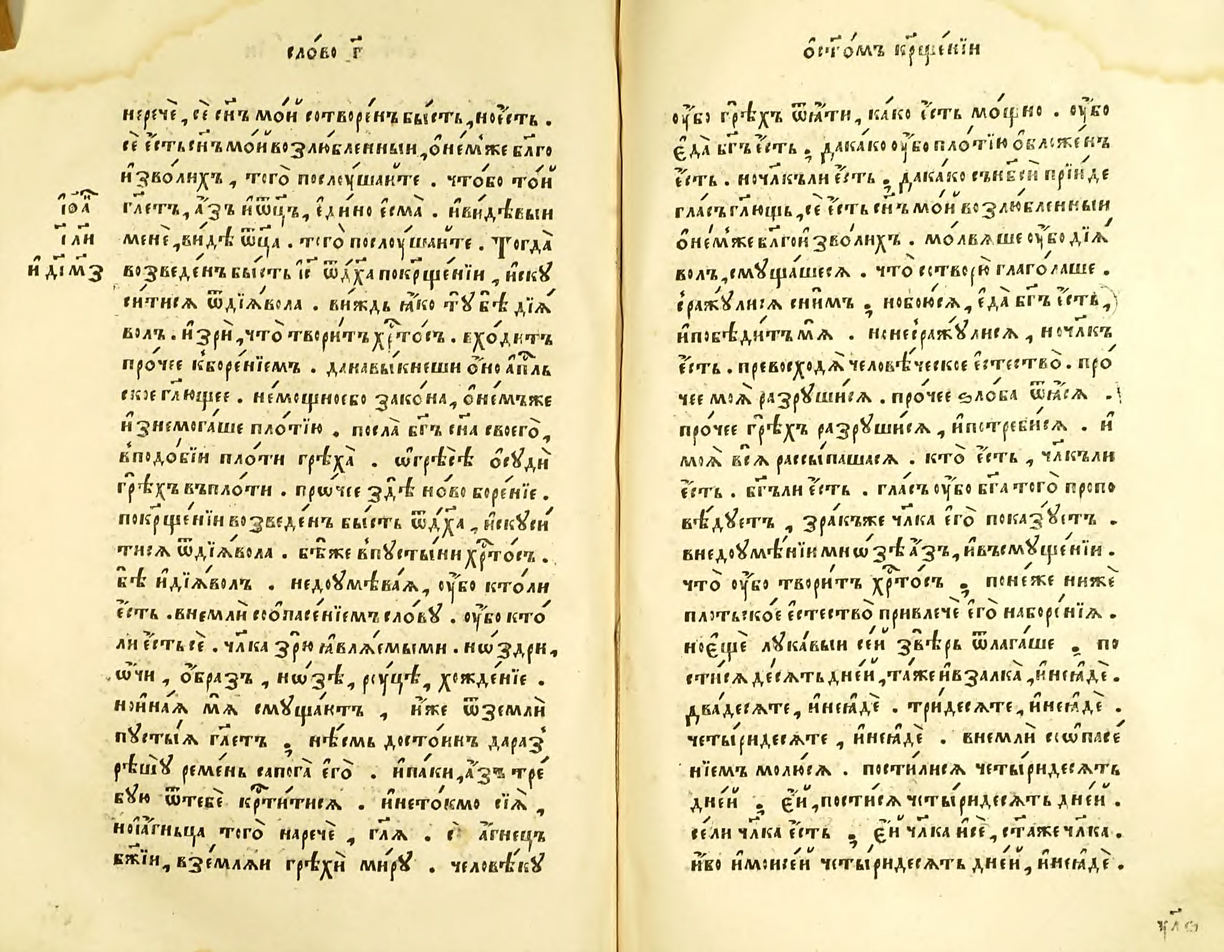 сло́во г҃
неречѐ, сѐ сн҃ъ мо́й сотворе́нъ бы́сть, но є҆́сть .
сѐ є҆́сть сн҃ъ мо́й возлю́бленныи, ѻ҆не́мже бл҃го
и҆зво́лихъ, того̀ послꙋ́шаите . что́бо то́й
гл҃етъ, а҆́зъ и҆ѿц҃ъ, є҆ди́но є҆сма̀ . и҆ви́дѣвыи
менѐ, ви́дѣ ѿц҃а . того̀ послоу́шаите . Тогда̀
возведе́нъ бы́сть і҆с҃ ѿдх҃а покрщ҃е́нїи, и҆скꙋ
си́тисѧ ѿдїѧ́вола . ви́ждь ꙗ҆́ко тꙋ̀ бѣ̀ дїѧ́
волъ . и҆зрѝ, что̀ твори́тъ хрⷭ҇то́съ . вхо́дитъ
про́чее кборе́нїемъ . данавы́кнеши ѻ҆́но а҆пⷭ҇ль
ское гл҃ющее . не́мощноебо зако́на, ѻ҆не́мъже
и҆знемога́ше пло́тїю . посла̀ бг҃ъ сн҃а своего̀,
вподо́бїи пло́ти грѣха̀ . ѡ҆грѣсѣ̀ ѻ҆сꙋдѝ
грѣ́хъ въпло́ти . прѡ́чее здѣ̀ но́во боре́нїе .
покрщ҃е́нїи возведе́нъ бы́сть ѿдх҃а, и҆скꙋси́
тисѧ ѿдїѧ́вола . бѣ́же впꙋсты́ни хрⷭ҇то́съ .
бѣ̀ и҆дїѧ́волъ . недоумѣва́ѧ, оу҆́бо кто́ли
є҆́сть . внемлѝ соопасе́нїемъ сло́вꙋ . оу҆́бо кто́
ли є҆́сть сѐ . чл҃ка зрю̀ ꙗ҆влѧ́емыми . нѡ́здри,
ѡ҆́чи, ѻ҆́бразъ, нѡ́зѣ, роу́цѣ, хожде́нїе .
но и҆на́ѧ мѧ̀ смꙋща́ютъ, и҆́же ѿземлѝ
пꙋсты́ѧ гл҃етъ ; нѣ́смь досто́инъ дараз
рѣшꙋ̀ реме́нь сапога̀ є҆го̀ . и҆па́ки, а҆́зъ тре́
бꙋю ѿтебѐ крⷭ҇ти́тисѧ . и҆нето́кмо сїѧ̀,
но ꙗ҆́гньца того̀ наречѐ, гл҃ѧ . сѐ а҆́гнецъ
бж҃їи, взе́млѧи грѣхѝ ми́рꙋ . человѣ́кꙋ
і҆ѡаⷩ҇
і҃ л҃и
и҆ д҃і м҃ з҃
ѻ҆ст҃о́мъ крщ҃е́нїи
оу҆́бо грѣ́хъ ѿѧ́ти, ка́ко є҆́сть мо́щно . оу҆́бо
є҆да̀ бг҃ъ є҆́сть ; дака́ко оу҆́бо пло́тїю ѻ҆бло́женъ
є҆́сть . но чл҃къли є҆́сть ; дака́ко сън҃бсѝ прїи́де
гла́съ гл҃ющь, сѐ є҆́сть сн҃ъ мо́й возлю́бленныи
ѻ҆не́мже бл҃гои҆зво́лихъ . мо́лвѧше оу҆́бо дїѧ́
волъ, смꙋща́шесѧ . что̀ сотворю̀ глаго́лаше .
сражꙋ́лисѧ сни́мъ ; но бою́сѧ, є҆да̀ бг҃ъ є҆́сть,
и҆побѣди́тъ мѧ̀ . нонесражꙋ́лисѧ, но чл҃къ
є҆́сть . превосходѧ̀ человѣ́ческое є҆стество̀ . про́
чее моѧ̀ разрꙋши́сѧ . про́чее ѕло́ба ѿѧ́сѧ .
про́чее грѣ́хъ разрꙋши́сѧ, и҆потреби́сѧ . и҆
моѧ̀ всѧ̀ рассы́пашасѧ . кто̀ є҆́сть, чл҃къли
є҆́сть . бг҃ъли є҆́сть . гла́съ оу҆́бо бг҃а того̀ пропо
вѣ́дꙋетъ, зра́къже чл҃ка є҆го̀ показꙋ́етъ .
внедоумѣ́нїи мнѡ́зѣ а҆́зъ, и҆въсмꙋще́нїи .
что̀ оу҆́бо твори́тъ хрⷭ҇то́съ ; поне́же нижѐ
плотьско́е є҆стество̀ привлечѐ є҆го̀ наборе́нїѧ .
но є҆щѐ лꙋка́выи се́й звѣ́рь ѿлага́ше ; по
сти́сѧ де́сѧть дне́й, та́же и҆взалка̀, и҆неꙗ҆дѐ .
два́десѧте, и҆неꙗ҆дѐ . три́десѧте, и҆неꙗ҆дѐ .
четы́ридесѧте, и҆неꙗ҆дѐ . внемлѝ соѡпасе́
нїемъ молю́сѧ . пости́лисѧ четы́ридесѧть
дне́й ; є҆́й, пости́сѧ четы́ридесѧть дне́й .
се́ли чл҃ка є҆́сть ; є҆́й чл҃ка и҆сѐ, ста́же чл҃ка .
и҆́бо и҆мѡисе́й четы́ридесѧть дне́й, и҆неꙗ҆дѐ .